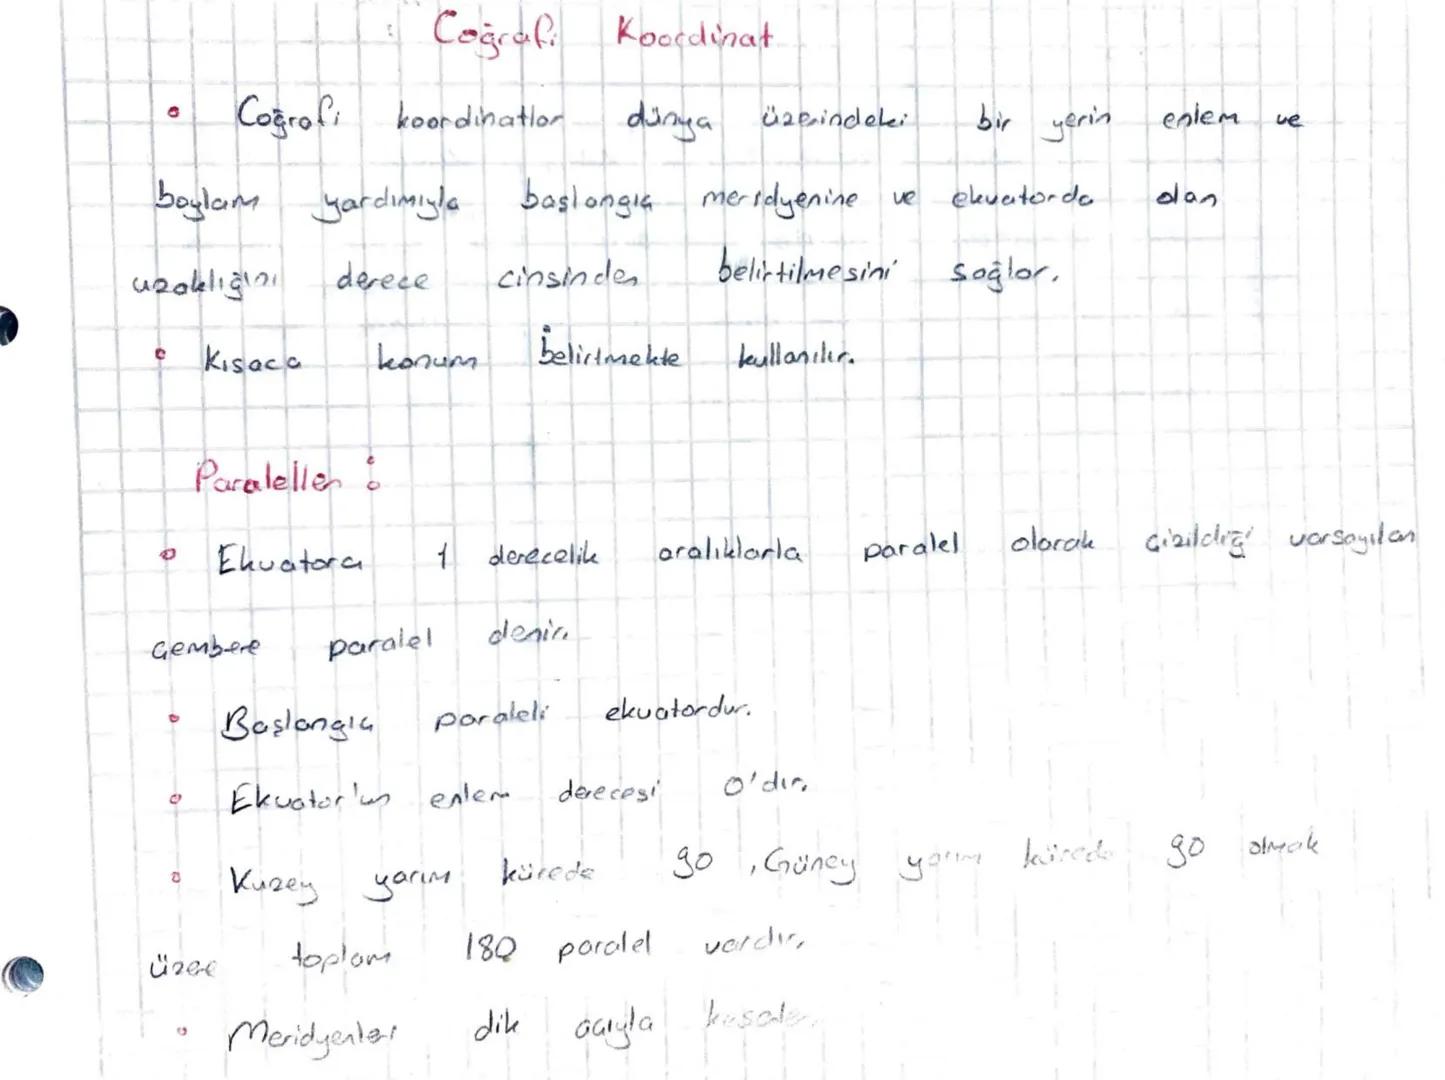 Coğrafi Koordinat
• Coğrafi koordinatlar dünya üzerindeki bir yerin enlem ve
boylam yardımıyla başlangıç meridyenine ve ekvatorda olan
uzaklığını derece cinsinden belirtilmesini sağlar.
• Kısaca konum belirtmekte kullanılır.
Paraleller :
• Ekvatora 1 derecelik aralıklarla paralel olarak çizildiği varsayılan
çembere paralel denir.
• Başlangıç paraleli ekvatordur.
• Ekvator'un enlem derecesi 0'dır.
• Kuzey yarım kürede 90, Güney yarım kürede 90 olmak
üzere toplam 180 paralel vardır.
• Meridyenleri dik açıyla keserler.